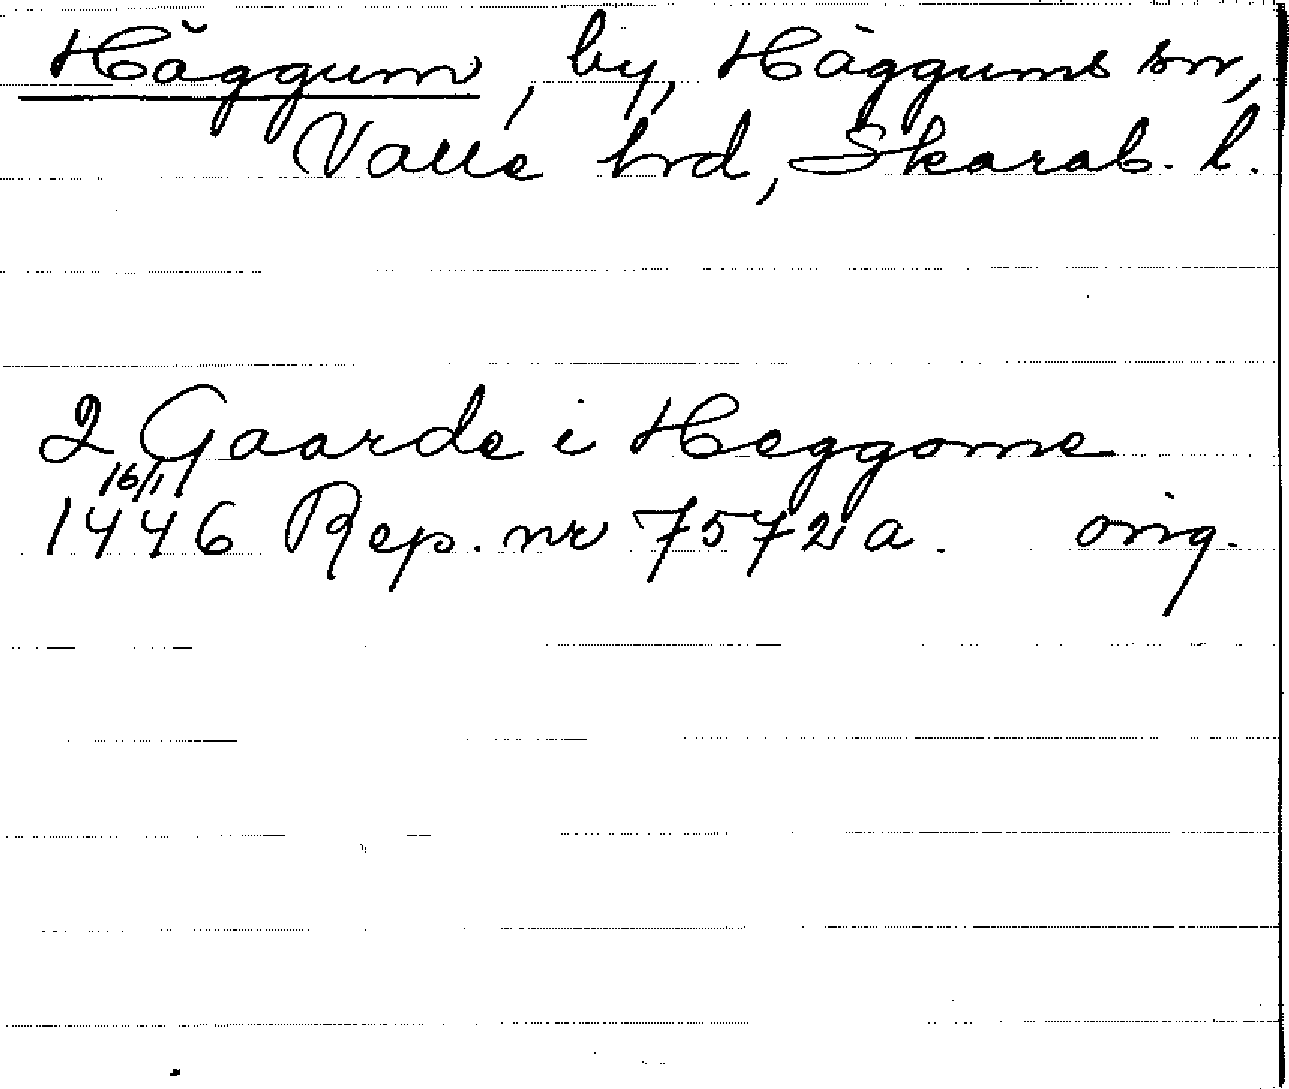 Häggum, by, Häggums sn,
Valle hrd, Skarab. l.
2 Gaarde i Heggome
16/1
1446 Rep. nr 7572 a. orig.